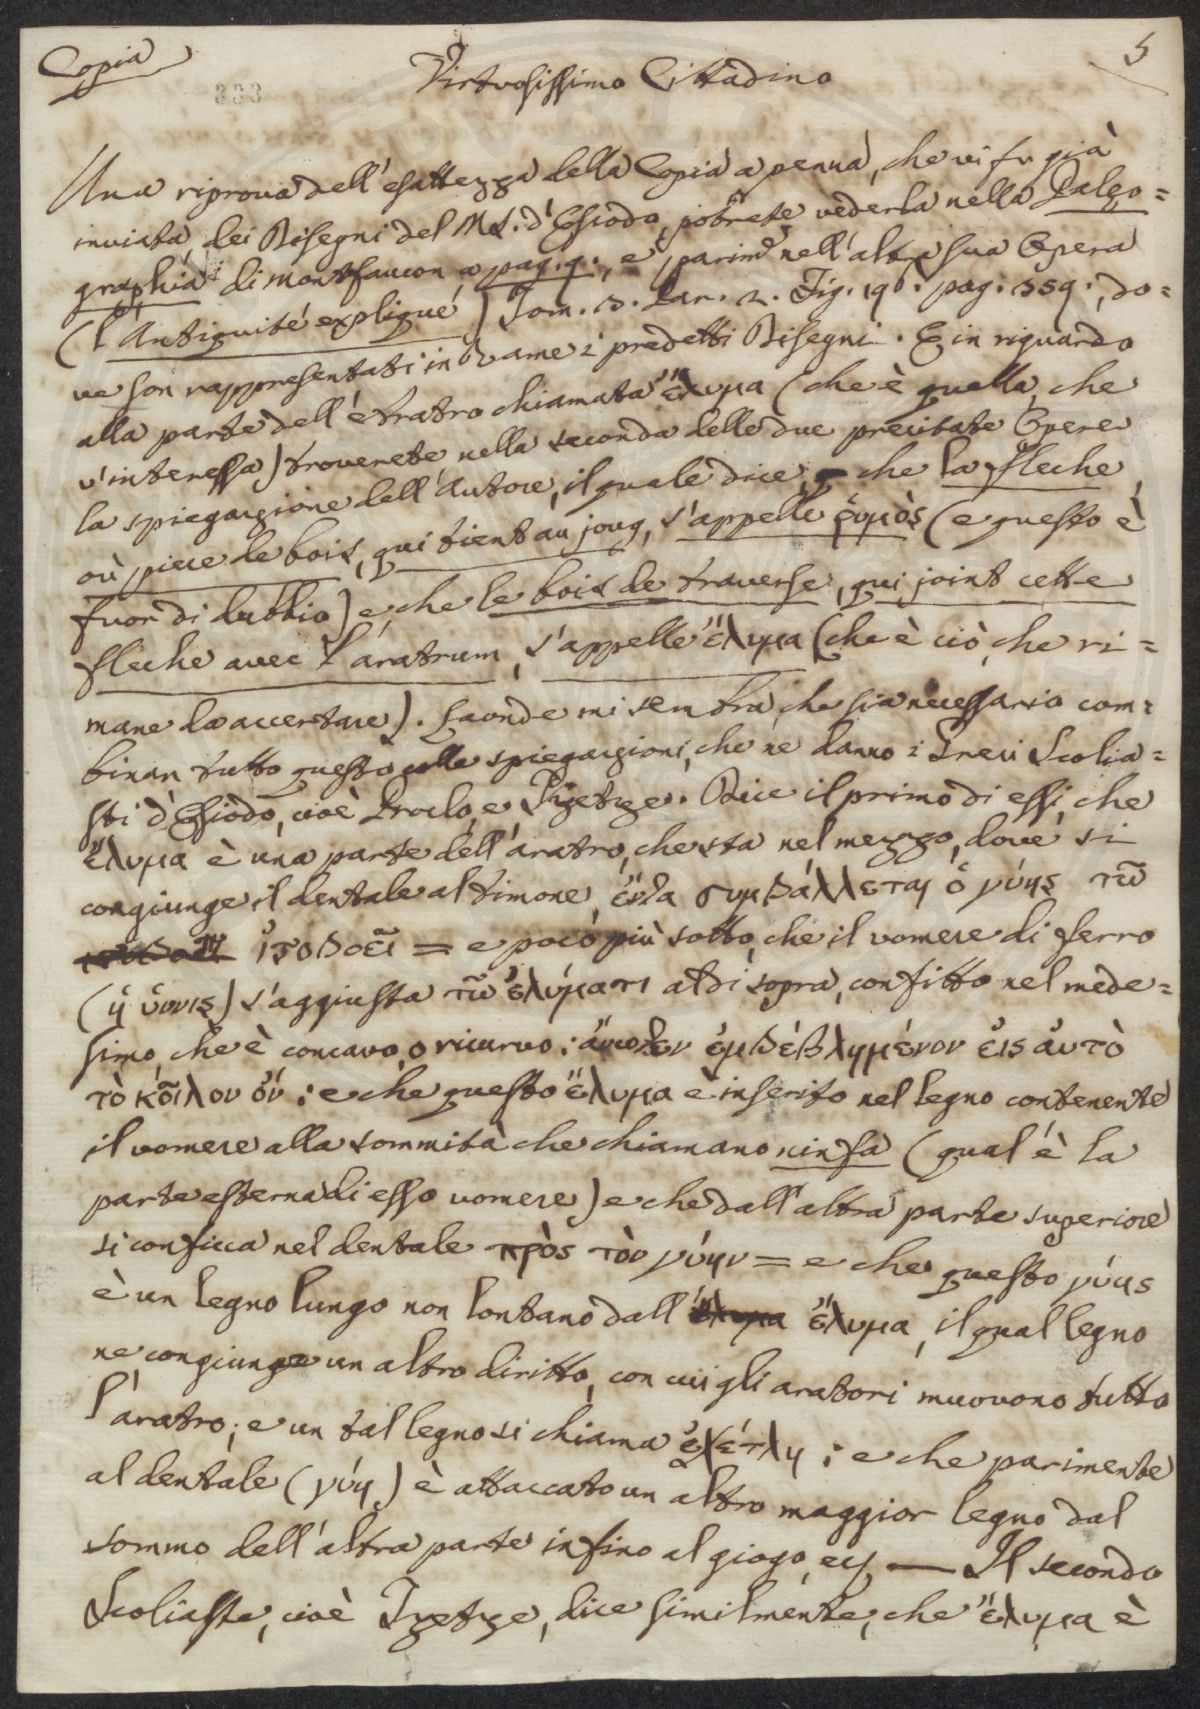 Copia
5
333
Virtuosissimo Cittadino
Una riprova dell'esattezza della Copia a penna, che vi fu già
inviata dei Disegni del Ms. d'Esiodo, potrete vederla nella Paleo=
graphia di Montfaucon a pag. 9., e parim.e nell'altra sua Opera
(l'Antiquité expliqué) Tom. 3. Par. 2. Fig. 19. pag. 359., do=
ve son rappresentati in rame i predetti Disegni. E in riguardo
alla parte dell'Aratro chiamata ἔλυμα (che è quella, che
v'interessa) troverete nella seconda delle due precitate Opere
la spiegazione dell'Autore, il quale dice, che la fleche,
où piece de bois, qui tient au joug, s'appelle ῥυμὸς (e questo è
fuor di dubbio) e che le bois de traverse, qui joint cette
fleche avec l'aratrum, s'appelle ἔλυμα (che è ciò, che ri=
mane da accertare). Laonde mi sembra, che sia necessario com=
binar tutto questo colle spiegazioni, che ne danno i Greci Scolia=
sti d'Esiodo, cioè Proclo, e Tzetze. Dice il primo di essi, che
ἔλυμα è una parte dell'aratro, che sta nel mezzo, dove si
congiunge il dentale al timone, ἔνθα συμβάλλεται ὁ γύης τῷ
ἱστοβοεῖ = e poco più sotto, che il vomere di ferro
(ἡ ὕννις) s'aggiusta τῷ ἐλύματι al di sopra, confitto nel mede=
simo, che è concavo, o ricurvo: ἄνωθεν ἐμβεβλημένον εἰς ἀυτὸ
τὸ κοῖλον ὄν: e che questo ἔλυμα è inserito nel legno contenente
il vomere alla sommità che chiamano ninfa (qual'è la
parte esterna di esso vomere) e che dall'altra parte superiore
si conficca nel dentale πρὸς τὸν γύην = e che questo γύης
è un legno lungo non lontano dall' ἔλυμα, il qual legno
ne congiunge un altro diritto, con cui gli aratori muovono tutto
l'aratro; e un tal legno si chiama ἐχέτλη: e che parimente
al dentale (γύη) è attaccato un altro maggior legno dal
sommo dell'altra parte infino al giogo, — Il secondo
Scoliaste, cioè Tzetze, dice similmente, che ἔλυμα è